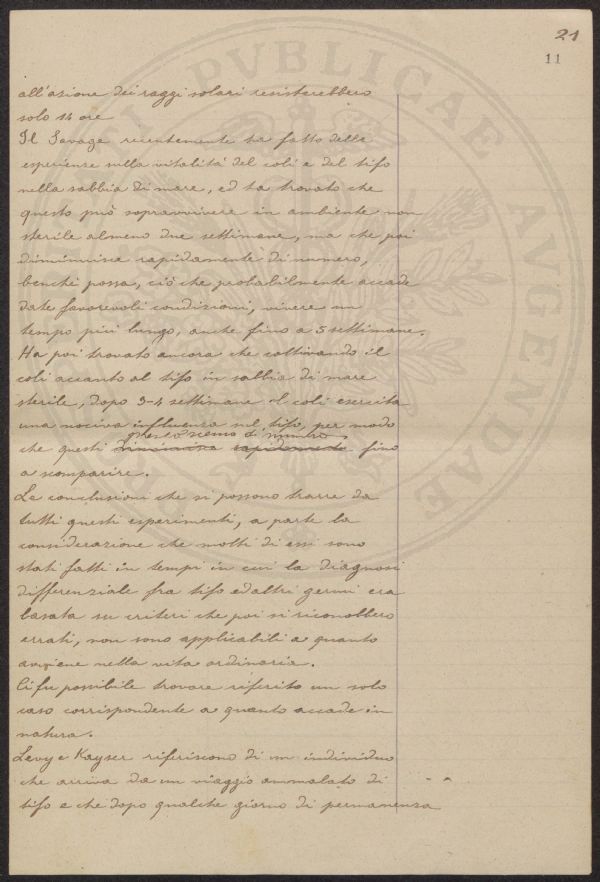 21
11
all'azione dei raggi solari resisterebbero
solo 14 ore
Il Savage recentemente ha fatto delle
esperienze sulla vitalità del coli e del tifo
nella sabbia di mare, ed ha trovato che
questo può sopravvivere in ambiente non
sterile almeno due settimane, ma che poi
diminuisce rapidamente di numero,
benchè possa, ciò che probabilmente accade
date favorevoli condizioni, vivere un
tempo più lungo, anche fino a 5 settimane.
Ha poi trovato ancora che coltivando il
coli accanto al tifo in sabbia di mare
sterile, dopo 3-4 settimane il coli esercita
una nociva influenza sul tifo, per modo
questo scema di numero
che questi diminuisce rapidamente fino
a scomparire.
Le conclusioni che si possono trarre da
tutti questi esperimenti, a parte la
considerazione che molti di essi sono
stati fatti in tempi in cui la diagnosi
differenziale fra tifo ed altri germi era
basata su criteri che poi si riconobbero
errati, non sono applicabili a quanto
avviene nella vita ordinaria.
Ci fu possibile trovare riferito un solo
caso corrispondente a quanto accade in
natura.
Levy e Kayser riferiscono di un individuo
che arriva da un viaggio ammalato di
tifo e che dopo qualche giorno di permanenza
PVBLICAE AVGENDAE